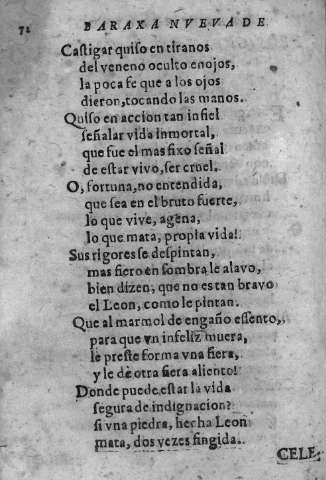 72 BARAXA NVEVA DE
Castigar quiso en tiranos
del veneno oculto enojos,
la poca fe que a los ojos
dieron, tocando las manos.
Quiso en accion tan infiel
señalar vida inmortal,
que fue el mas fixo señal
de estar vivo, ser cruel.
O, fortuna, no entendida,
que sea en el bruto fuerte,
lo que vive, agena,
lo que mata, propia vida!
Sus rigores se despintan,
mas fiero en sombra le alavo,
bien dizen, que no es tan bravo
el Leon, como le pintan.
Que al marmol de engaño essento,
para que vn infeliz muera,
le preste forma vna fiera,
y le dè otra fiera aliento!
Donde puede estar la vida
segura de indignacion?
si vna piedra, hecha Leon
mata, dos vezes fingida.
CELE